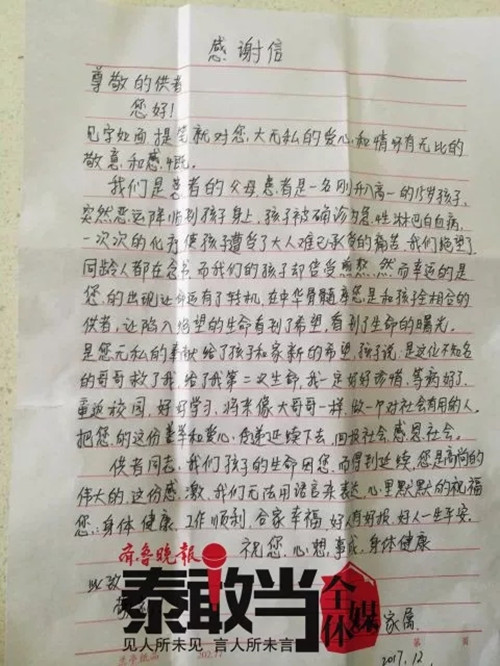 感谢信
尊敬的供者
您好!
见字如面提笔就对您,大无私的爱心,和情好有无比的
敬意和感慨。
我们是患者的父母,患者是一名刚升入高一的15岁孩子,
突然恶运降临到孩子身上,孩子被确诊为急性淋巴白血病,
一次次的化疗使孩子遭受了大人难已承受的痛苦,我们绝望了,
同龄人都在念书而我们的孩子却倍受煎熬,然而幸运的是
您的出现让命运有了转机,在中华骨髓库您是和孩子全相合的
供者,让陷入绝望的生命看到了希望,看到了生命的曙光。
是您无私的奉献给了孩子和家新的希望,孩子说:是这位不知名
的哥哥救了我,给了我第二次生命,我一定好好珍惜,等病好了,
重返校园,好好学习,将来像大哥哥一样,做一个对社会有用的人。
把您的这份善举和爱心,传递延续下去,回报社会,感恩社会。
供者同志,我们孩子的生命因您而得到延续,您是高尚的
伟大的,这份感激,我们无法用语言来表达,心里默默的祝福
您:身体健康,工作顺利,合家幸福,好人有好报,好人一生平安。
祝您,心想事成,身体健康
此致
齐鲁晚报
泰敢当
全媒体
见人所未见 言人所未言
家属
2017.12